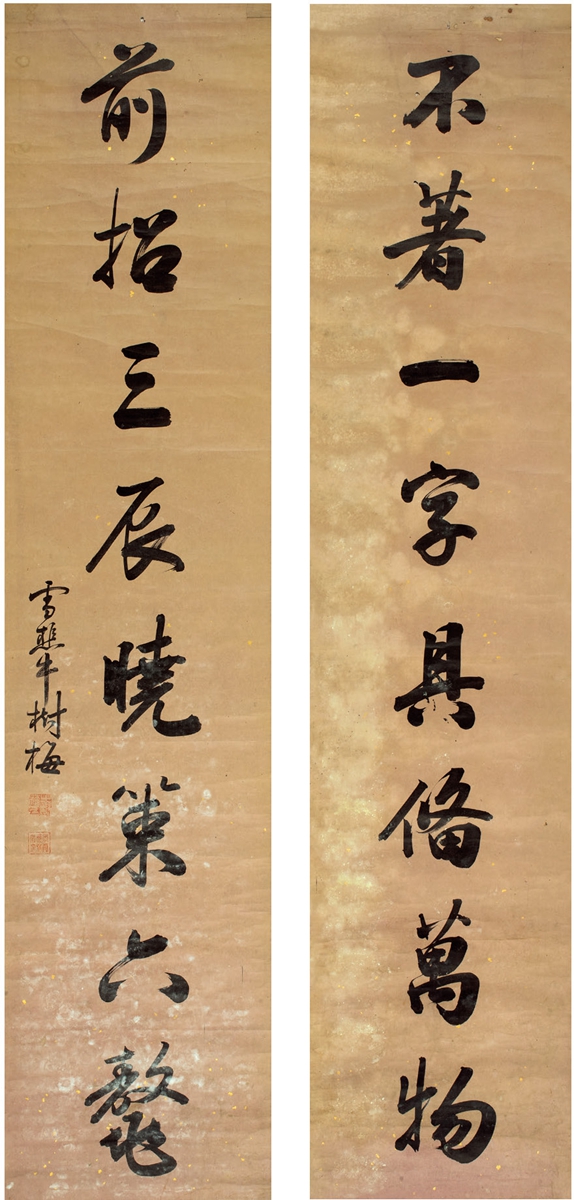 不著一字具備萬物
前招三辰曉策六鼇
雪樵牛樹梅